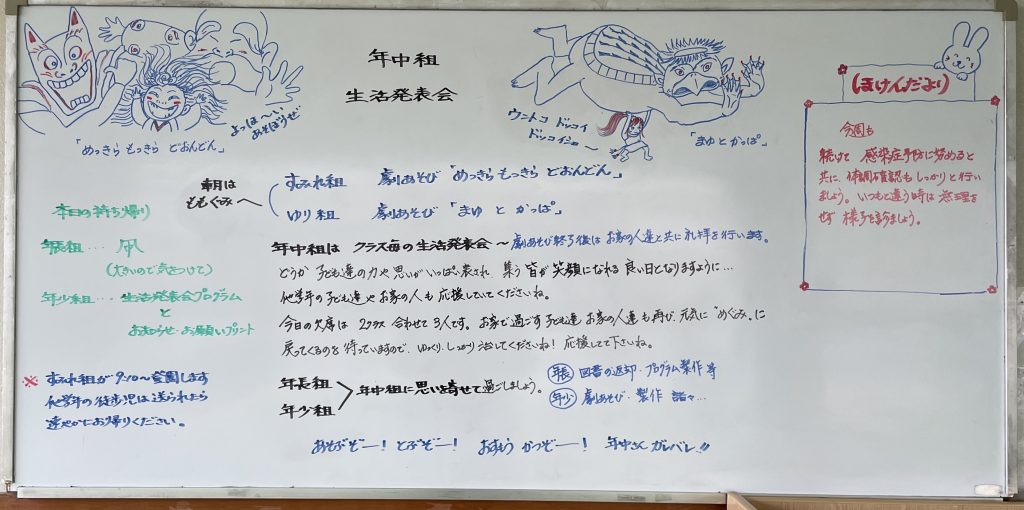 年中組
生活発表会
よっほ〜い
あそぼうぜ
「めっきら もっきら どおんどん」
ウントコ ドッコイ
ドッコイショ〜
「まゆとかっぱ」
ほけんだより
今週も
続けて 感染症予防に努めると
共に、体調確認もしっかりと行い
ましょう。いつもと違う時は無理を
せず 様子を診ましょう。
ももぐみへ
すみれ組 劇あそび「めっきら もっきら どおんどん」
ゆり組 劇あそび「まゆ と かっぱ」
本日の持ち帰り
年長組… 凧
(大きいので気をつけて)
年少組… 生活発表会プログラム
と
お知らせ・お願いプリント
年中組は クラス毎の生活発表会〜劇あそび終了後はお家の人達と共に礼拝を行います。
どうか 子ども達の力や思いがいっぱい表され、集う皆が笑顔になれる良い日となりますように…
他学年の子ども達やお家の人も応援していてくださいね。
今日の欠席は 2クラス 合わせて3人です。お家で過ごす子ども達、お家の人達も再び、元気に"めぐみ"に
戻ってくるのを待っていますので、ゆっくり、しっかり治してくださいね！応援してて下さいね。
※ すみれ組が9:10〜登園します
他学年の徒歩児は送られたら
速やかにお帰りください。
年長組
年少組
年中組に思いを寄せて過ごしましょう。
年長 図書の返却・プログラム製作 等
年少 劇あそび・製作 諸々…
あそぶぞー！とぶぞー！ おすもう かつぞー！ 年中さん ガンバレ!!